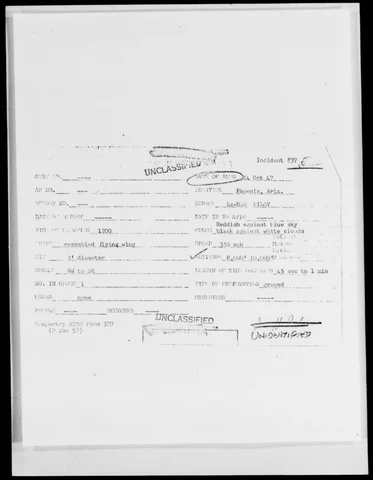 UNCLASSIFIED
Incident #37
AFIC NO. ---
DATE OF INFO 14 Oct 47
AF NO. ---
LOCATION Phoenix, Ariz.
REPORT NO. ---
SOURCE PILOT
DATE OF REPORT ---
DATE IN TO ATIC ---
1200
COLOR Reddish against blue sky
black against white clouds
SHAPE resembled flying wing
SPEED 350 mph
SIZE 3' diameter
ALTITUDE 8,000' 10,000'
COURSE NW to SE
LENGTH OF TIME OBSERVED 45 sec to 1 min
NO. IN GROUP 1
TYPE OF OBSERVATION ground
SOUND none
MANEUVERS ---
PHOTOS --- SKETCHES ---
Temporary ATIC Form 329
(2 Jan 52)
UNCLASSIFIED
UNIDENTIFIED